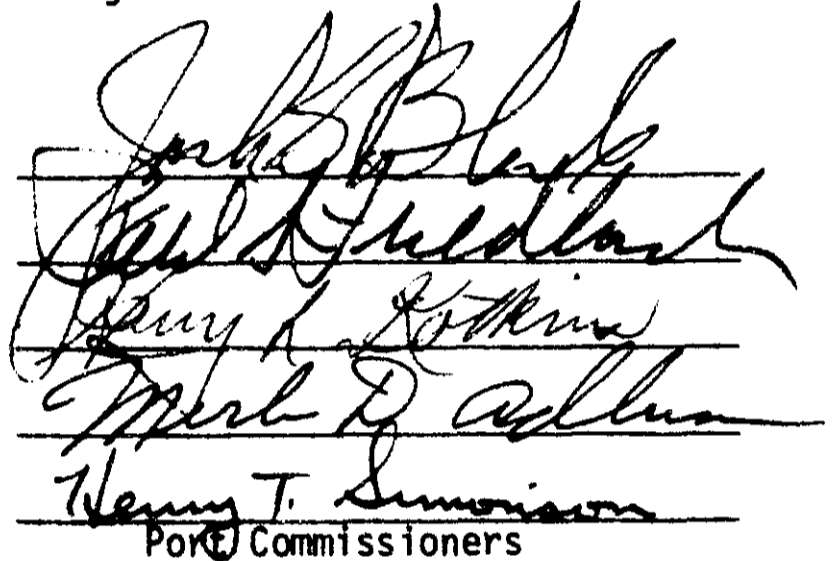 Jack Block
Paul Friedland
Henry L. Kotkins
Merle D. Adlum
Henry T. Simonson
Port Commissioners